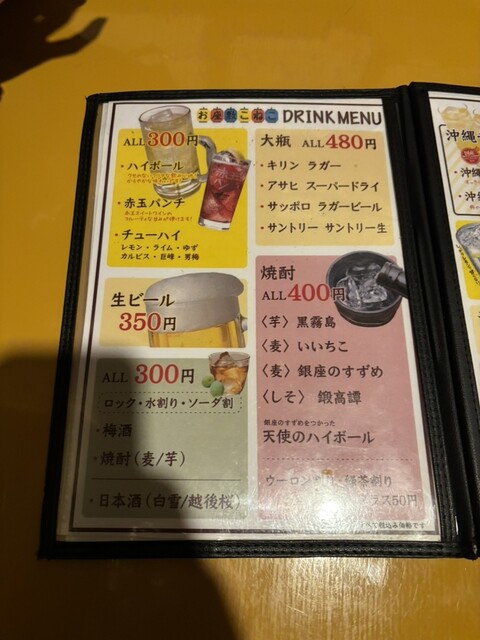 お座敷こねこ DRINK MENU
ALL 300円
・ハイボール
・赤玉パンチ
・チューハイ
レモン・ライム・ゆず
カルピス・巨峰・男梅
生ビール
350円
ALL 300円
ロック・水割り・ソーダ割
・梅酒
・焼酎(麦/芋)
・日本酒(白雪/越後桜)
大瓶 ALL 480円
・キリン ラガー
・アサヒ スーパードライ
・サッポロ ラガービール
・サントリー サントリー生
焼酎
ALL 400円
〈芋〉 黒霧島
〈麦〉 いいちこ
〈麦〉 銀座のすずめ
〈しそ〉 鍛高譚
銀座のすずめをつかった
天使のハイボール
ウーロン割り・緑茶割り
プラス50円
沖縄